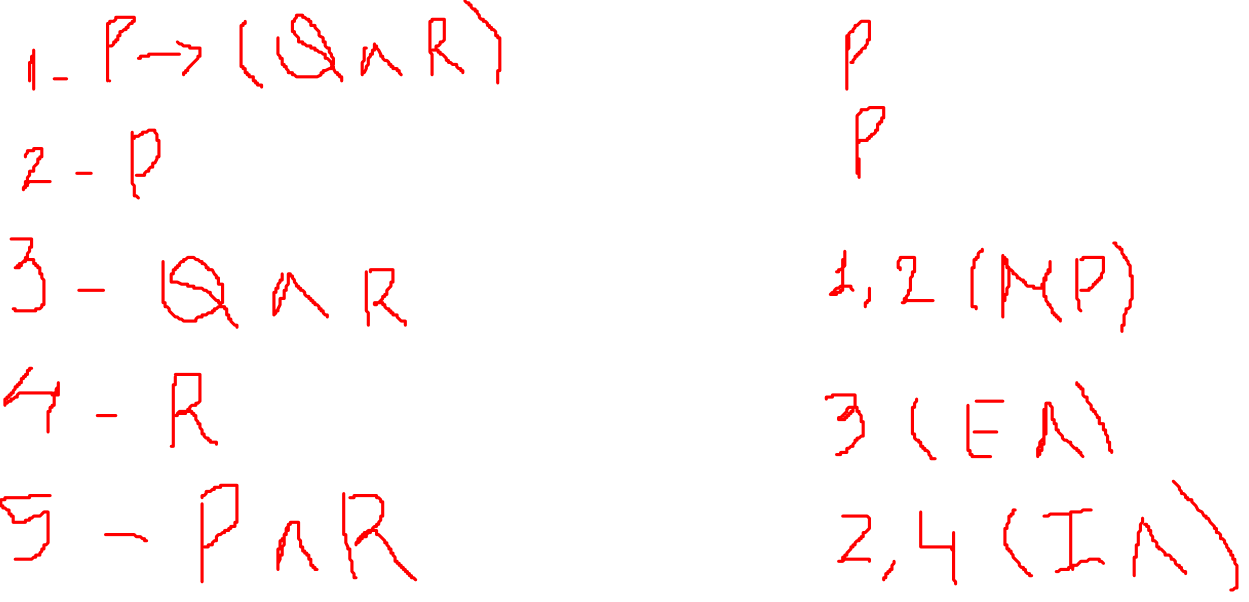 1- P → (Q ∧ R) P
2- P P
3- Q ∧ R 1,2 (MP)
4- R 3 (E∧)
5- P ∧ R 2,4 (I∧)